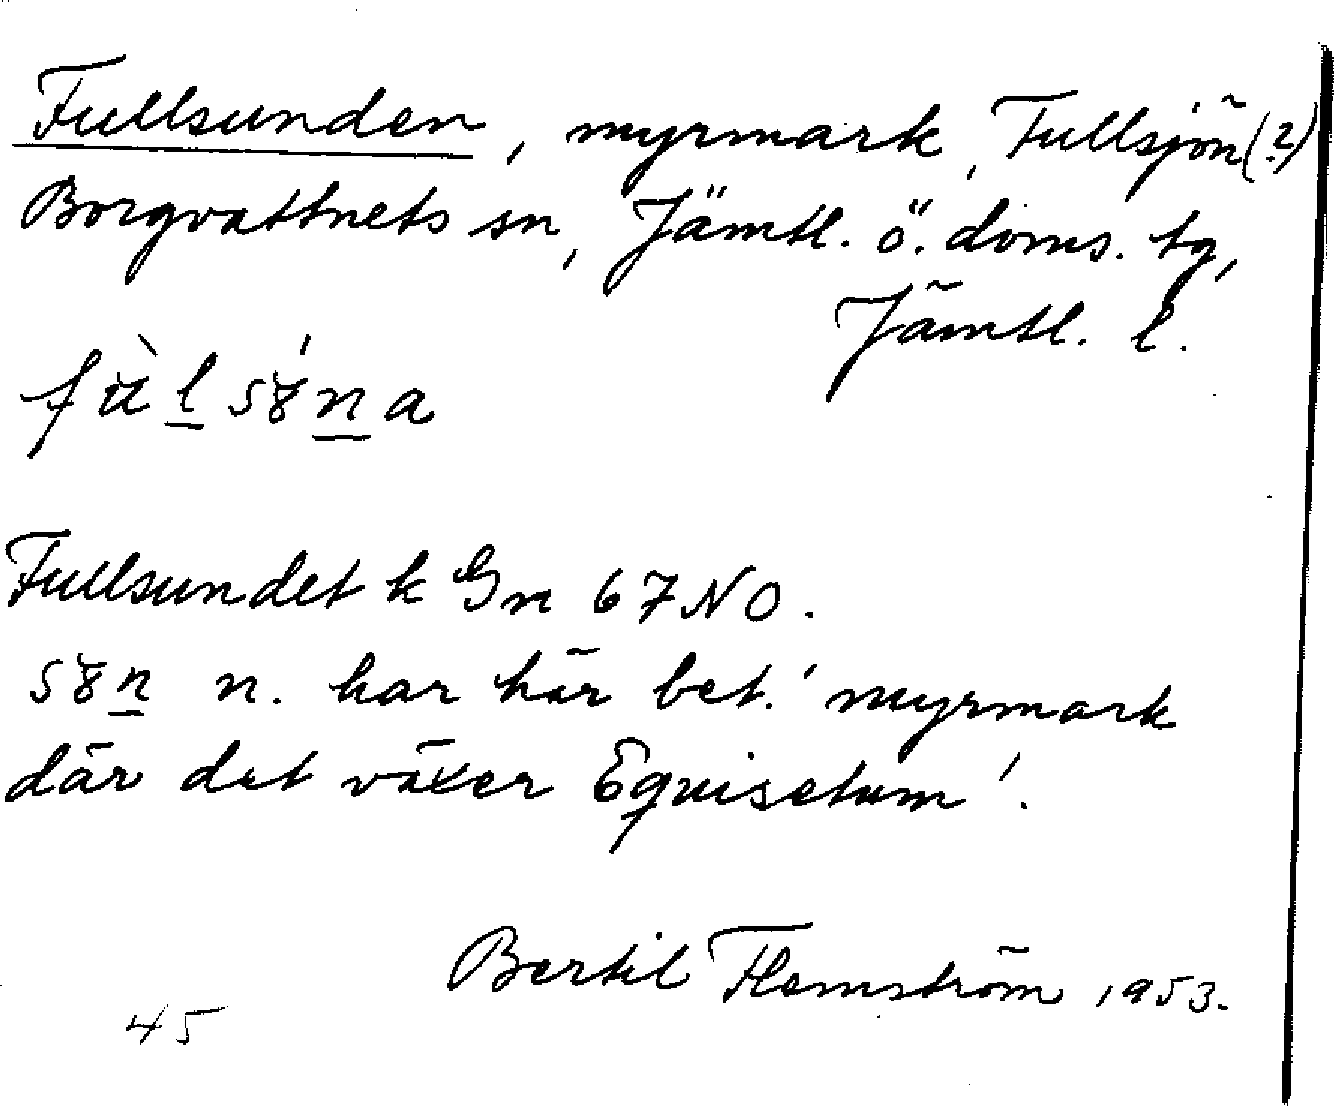 Fullsunden, myrmark, Fullsjön (?)
Borgvattnets sn, Jämtl. ö. doms. tg,
Jämtl. l.
Fullsundet k Gn 67 NO.
n. har här bet. 'myrmark
där det växer Equisetum'.
Bertil Flemström 1953.
45